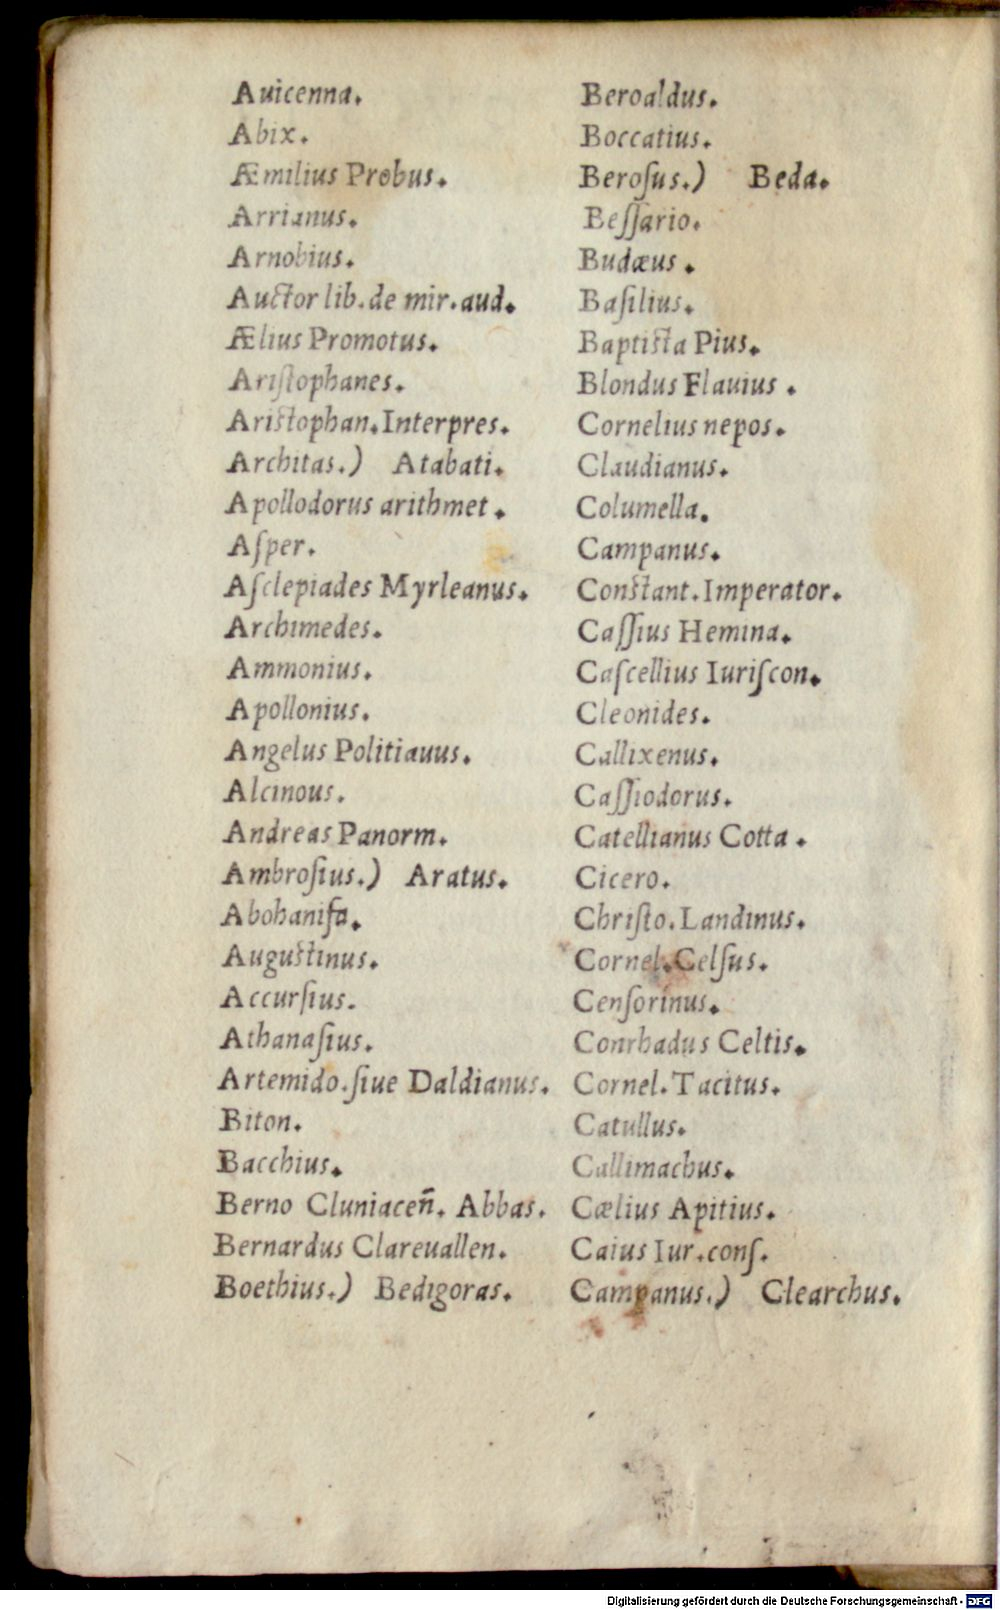 Auicenna.
Abix.
Æmilius Probus.
Arrianus.
Arnobius.
Auctor lib. de mir. aud.
Ælius Promotus.
Ariſtophanes.
Ariſtophan. Interpres.
Architas.) Atabati.
Apollodorus arithmet.
Aſper.
Aſclepiades Myrleanus.
Archimedes.
Ammonius.
Apollonius.
Angelus Politiauus.
Alcinous.
Andreas Panorm.
Ambroſius.) Aratus.
Abohanifa.
Auguſtinus.
Accurſius.
Athanaſius.
Artemido. ſiue Daldianus.
Biton.
Bacchius.
Berno Cluniaceñ. Abbas.
Bernardus Clareuallen.
Boethius.) Bedigoras.
Beroaldus.
Boccatius.
Beroſus.) Beda.
Beſſario.
Budæus.
Baſilius.
Baptiſta Pius.
Blondus Flauius.
Cornelius nepos.
Claudianus.
Columella.
Campanus.
Conſtant. Imperator.
Caſſius Hemina.
Caſcellius Iuriſcon.
Cleonides.
Callixenus.
Caſſiodorus.
Catellianus Cotta.
Cicero.
Chriſto. Landinus.
Cornel. Celſus.
Cenſorinus.
Conrhadus Celtis.
Cornel. Tacitus.
Catullus.
Callimachus.
Cælius Apitius.
Caius Iur. conſ.
Campanus.) Clearchus.
Digitalisierung gefördert durch die Deutsche Forschungsgemeinschaft - DFG